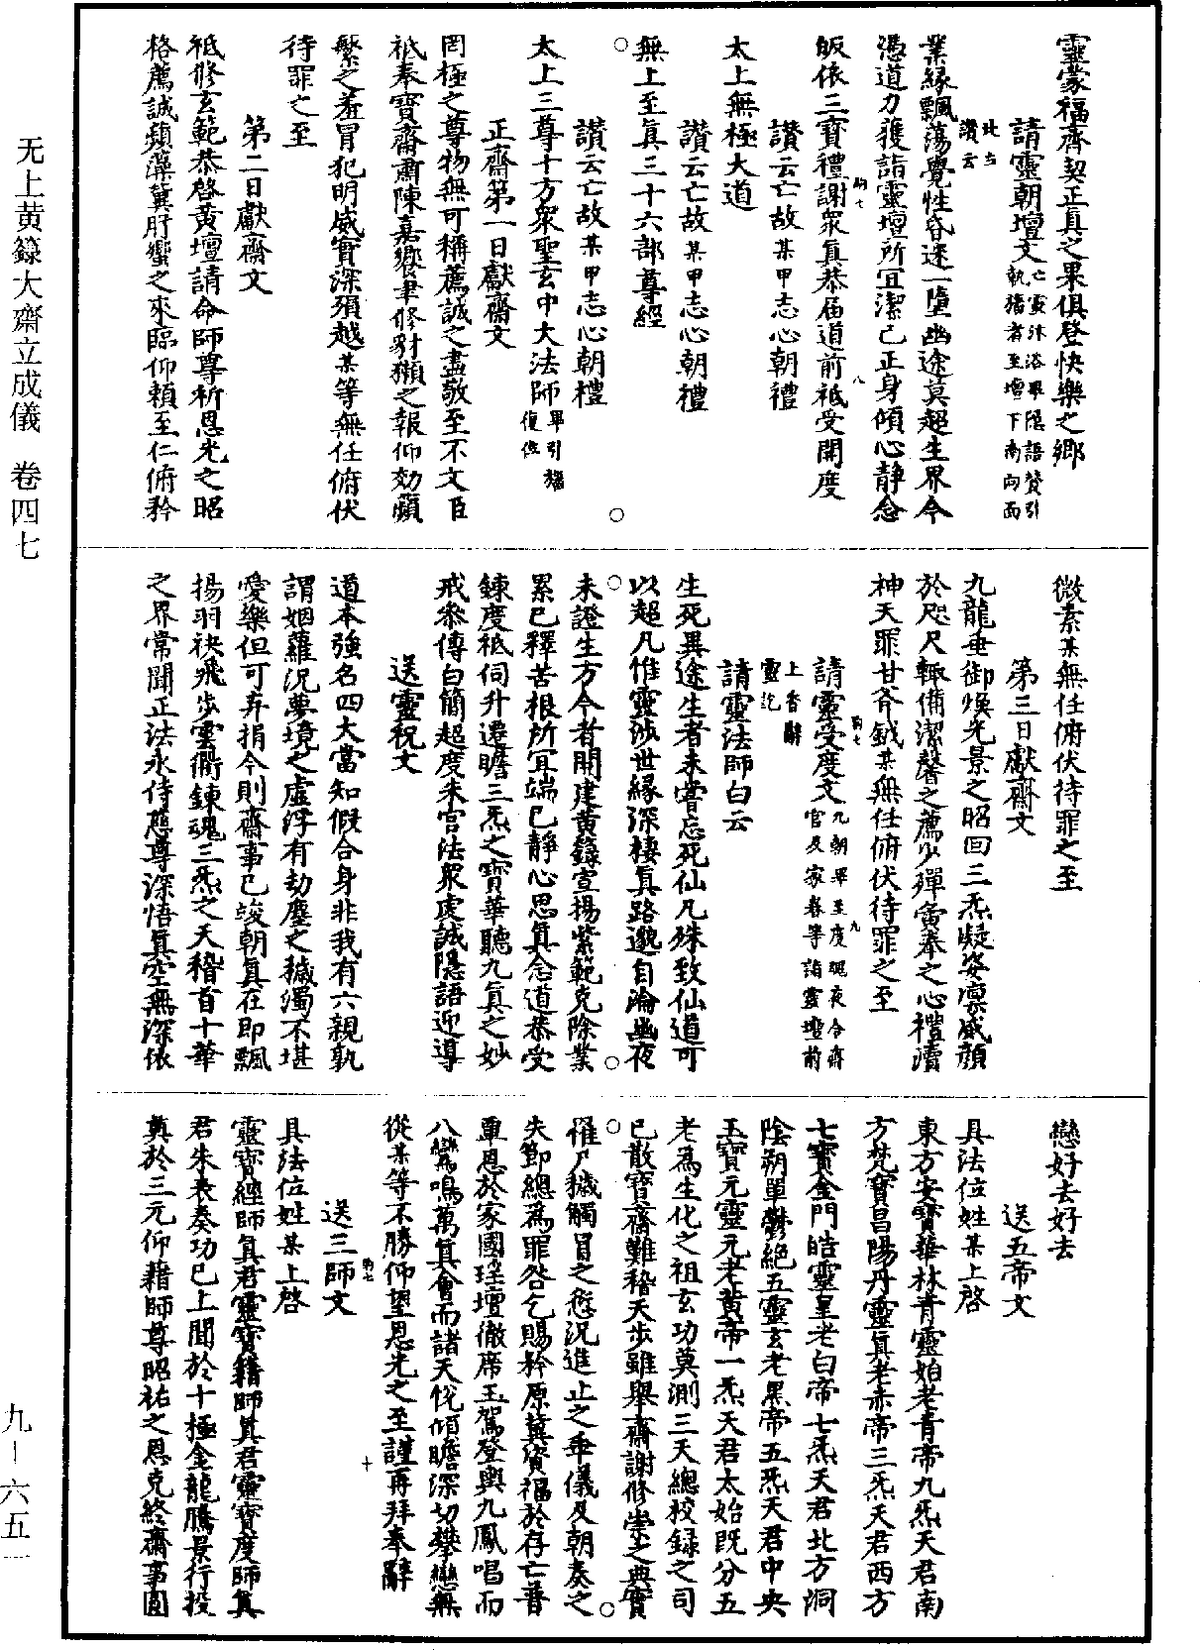 无上黄籙大齋立成儀 卷四七
九—六五一
靈蒙福齊契正真之果俱登快樂之鄉
請靈朝壇文亡靈沐浴畢隱語贊引執旛者至壇下南向面
北立讃云
業緣飄蕩覺性昏迷一墮幽途莫超生界今
憑道力獲詣靈壇所宜潔己正身傾心靜念
皈依三寶禮謝衆真恭届道前祇受開度
讃云亡故某甲志心朝禮
太上無極大道
讃云亡故某甲志心朝禮
無上至真三十六部尊經
讃云亡故某甲志心朝禮
太上三尊十方衆聖玄中大法師畢引旛復位
正齋第一日獻齋文
罔極之尊物無可稱薦誠之盡敬至不文臣
祇奉寶齋肅陳嘉饗聿修豺獺之報仰効蘋
蘩之羞冒犯明威實深殞越某等無任俯伏
待罪之至
第二日獻齋文
祇修玄範恭啓黄壇請命師尊祈恩光之昭
格薦誠蘋藻冀肸蠁之來臨仰頼至仁俯矜
微素某無任俯伏待罪之至
第三日獻齋文
九龍垂御煥光景之昭回三炁凝姿凜威顏
於咫尺輒備潔馨之薦少殫寅奉之心禮瀆
神天罪甘斧鉞某無任俯伏待罪之至
請靈受度文九朝畢至度魂夜令齋官及家眷等詣靈壇前
上香辭靈訖
請靈法師白云
生死異途生者未嘗忘死仙凡殊致仙道可
以超凡惟靈涉世緣深棲真路邈自淪幽夜
未證生方今者開建黄籙宣揚紫範克除業
累已釋苦根所宜端已靜心思真念道恭受
鍊度祇伺升遷瞻三炁之寶華聽九真之妙
戒叅傳白簡超度朱宫法衆虔誠隱語迎導
送靈祝文
道本強名四大當知假合身非我有六親孰
謂姻蘿況夢境之虛浮有劫塵之穢濁不堪
愛樂但可弃捐今則齋事已竣朝真在即飄
揚羽袂飛步雲衢鍊魂三炁之天稽首十華
之界常聞正法永侍慈尊深悟真空無深依
戀好去好去
送五帝文
具法位姓某上啓
東方安寶華林青靈始老青帝九炁天君南
方梵寶昌陽丹靈真老赤帝三炁天君西方
七寶金門皓靈皇老白帝七炁天君北方洞
陰朔單鬱絶五靈玄老黑帝五炁天君中央
玉寶元靈元老黄帝一炁天君太始既分五
老為生化之祖玄功莫測三天總校録之司
已散寶齋難稽天步雖舉齋謝修崇之典實
罹尸穢觸冒之愆況進止之乖儀及朝奏之
失節總為罪咎乞賜矜原冀資福於存亡普
重恩於家國瑤壇徹席玉駕登輿九鳳唱而
八鸞鳴萬真會而諸天悅傾瞻深切攀戀無
從某等不勝仰望恩光之至謹再拜奉辭
送三師文
具法位姓某上啓
靈寶經師真君靈寶籍師真君靈寶度師真
君朱表奏功已上聞於十極金龍騰景行投
奠於三元仰藉師尊昭祐之恩克終齋事圓